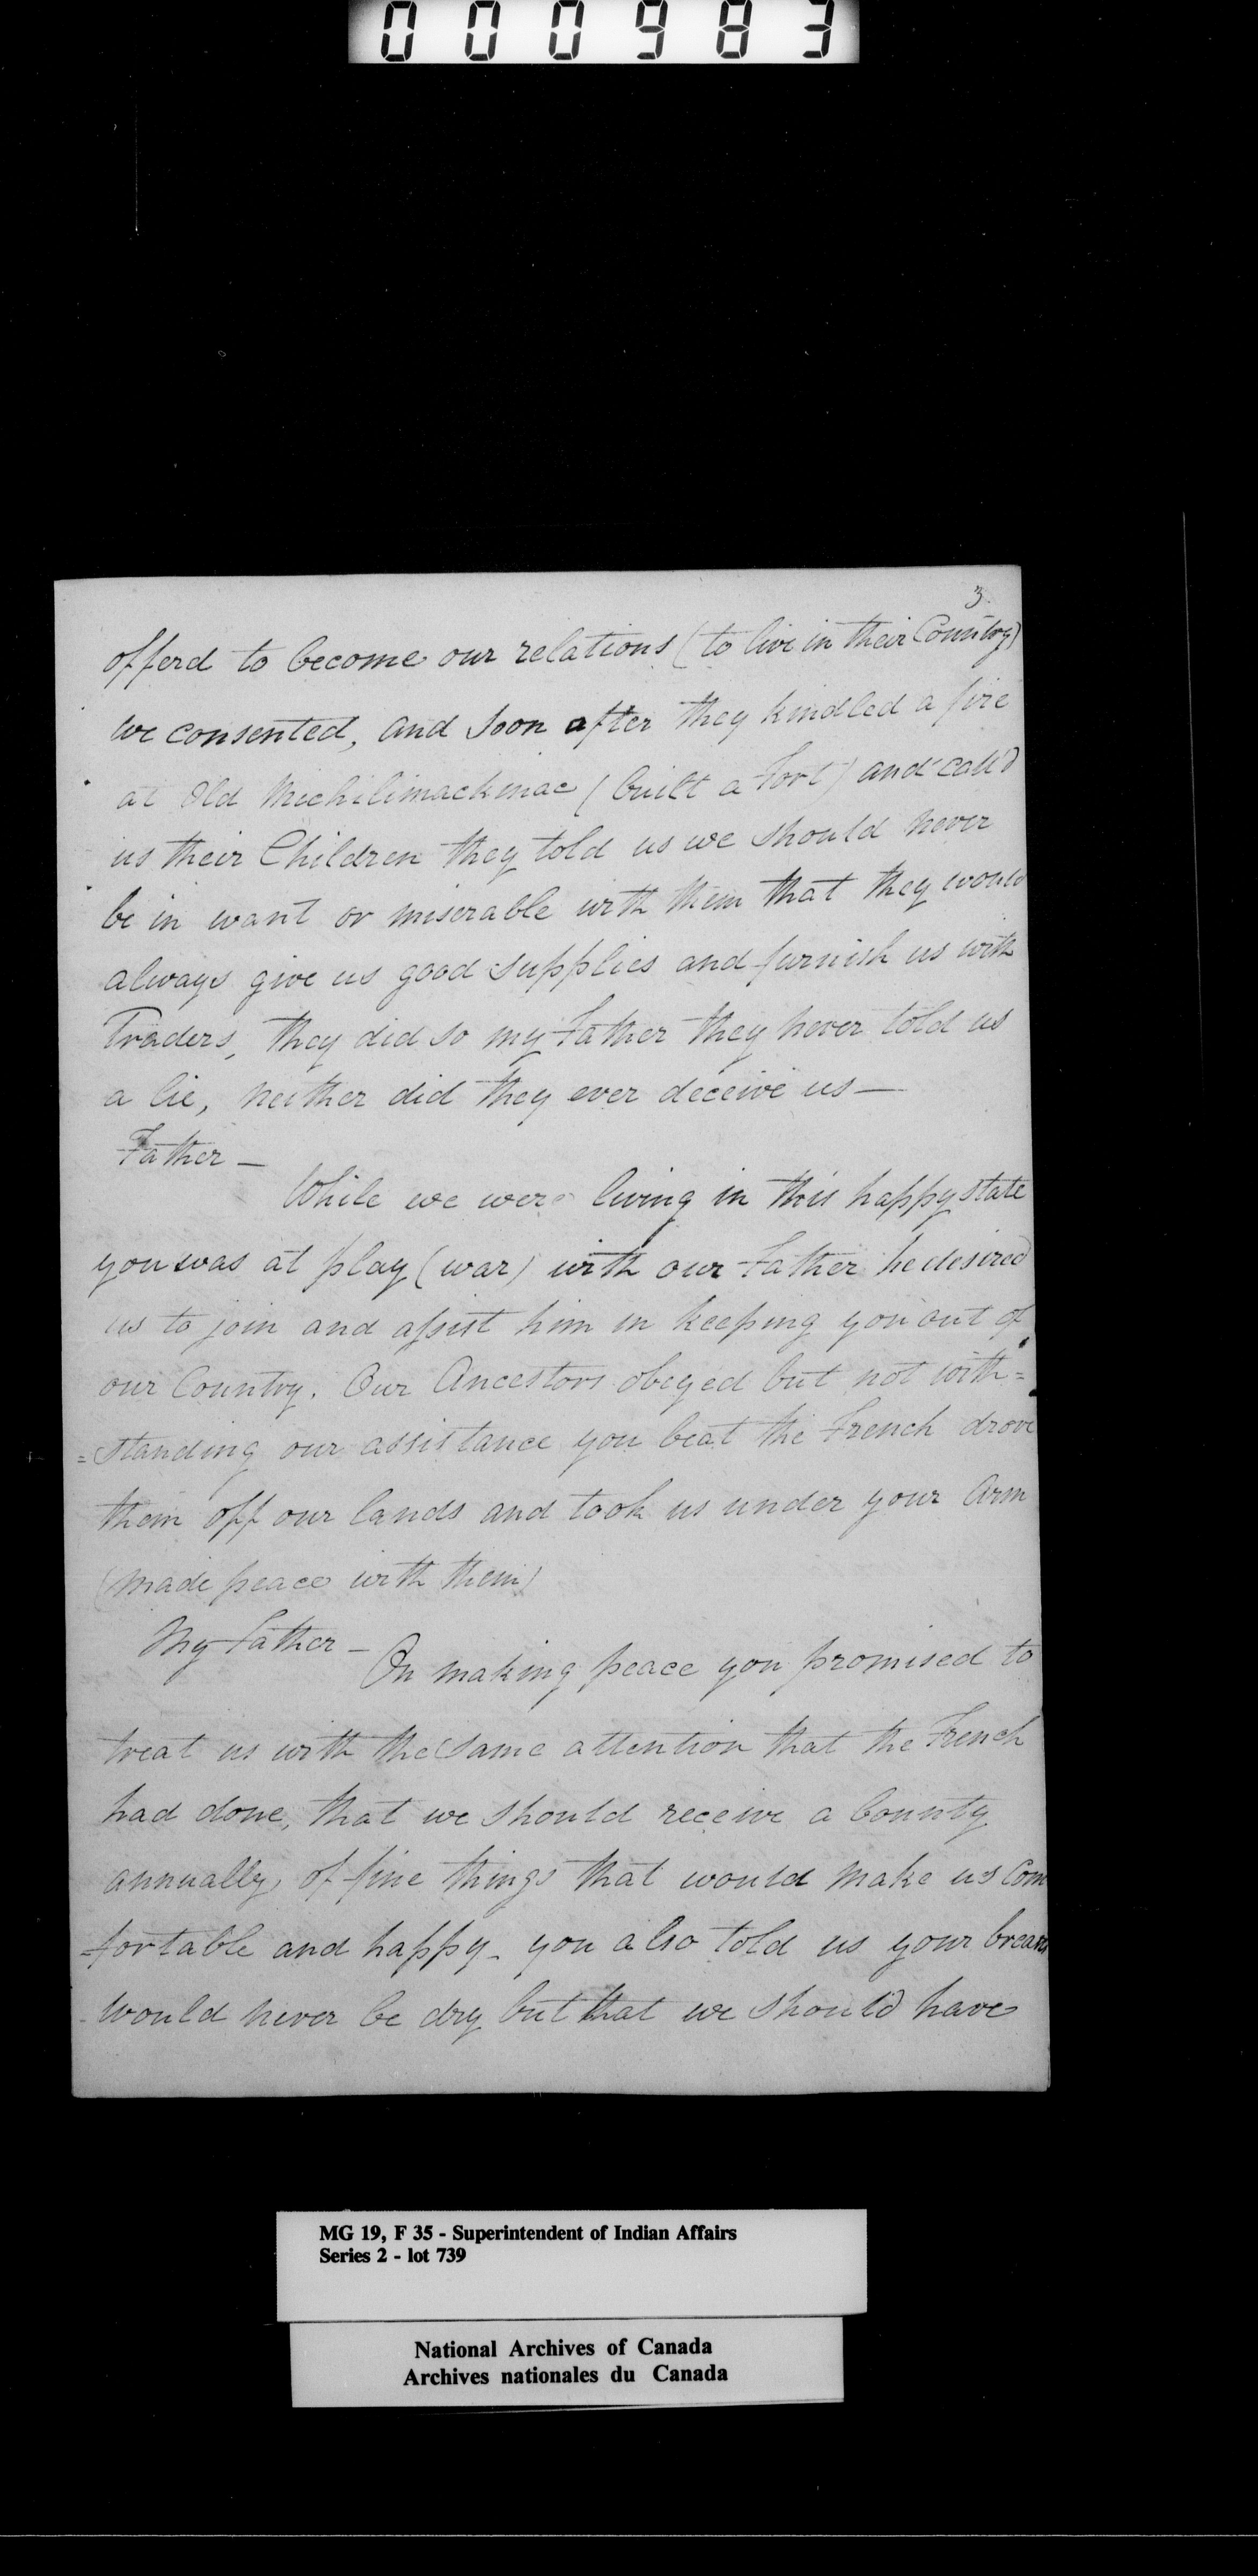 000983
3.
offerd to become our relations (to live in their Country)
we consented, and soon after they kindled a fire
at Old Michilimackinac (built a Fort) and call'd
us their Children they told us we should never
be in want or miserable with them that they would
always give us good supplies and furnish us with
Traders, they did so my Father they never told us
a lie, neither did they ever deceive us —
Father —
While we were living in this happy state
you was at play (war) with our Father he desired
us to join and assist him in keeping you out of
our Country. Our Ancestors obeyed but not with=
=standing our assistance you beat the French drove
them off our lands and took us under your Arm
(made peace with them)
My Father —
On making peace you promised to
treat us with the same attention that the French
had done, that we should receive a bounty
annually of fine things that would make us Com
=fortable and happy - you also told us your breasts
would never be dry but that we should have
MG 19, F 35 - Superintendent of Indian Affairs
Series 2 - lot 739
National Archives of Canada
Archives nationales du Canada